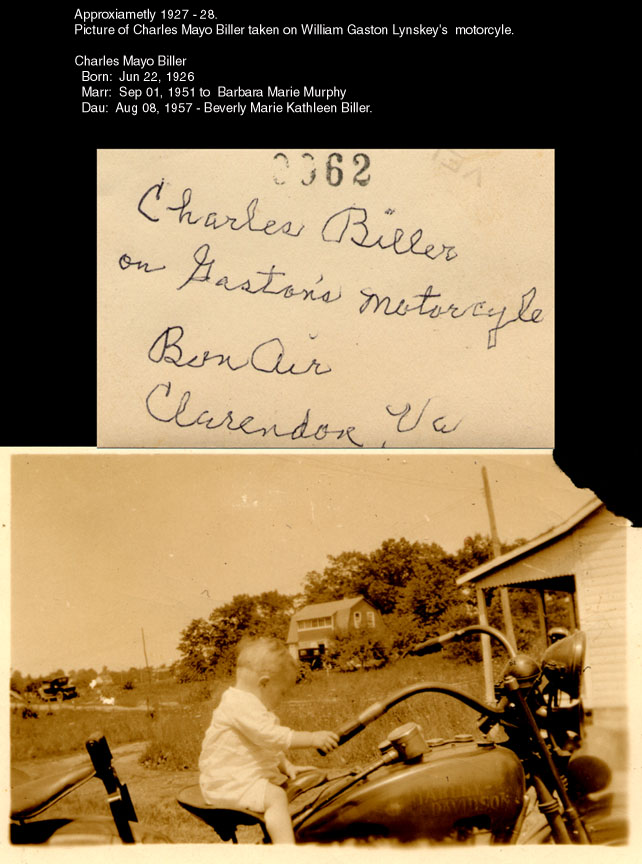 Approxiametly 1927 - 28.
Picture of Charles Mayo Biller taken on William Gaston Lynskey's motorcyle.
Charles Mayo Biller
Born: Jun 22, 1926
Marr: Sep 01, 1951 to Barbara Marie Murphy
Dau: Aug 08, 1957 - Beverly Marie Kathleen Biller.
62
Charles Biller
on Gaston's motorcyle
Bon Air
Clarendon, Va
HARLEY
DAVIDSON